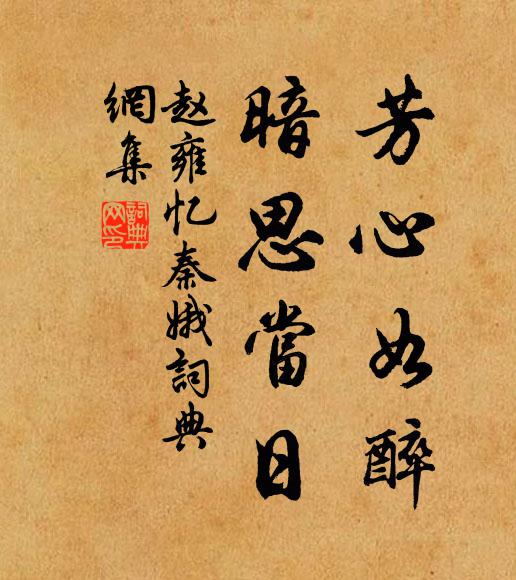 芳心如醉
暗思當日
赵雍忆秦娥詞典
網集
詞典
网印